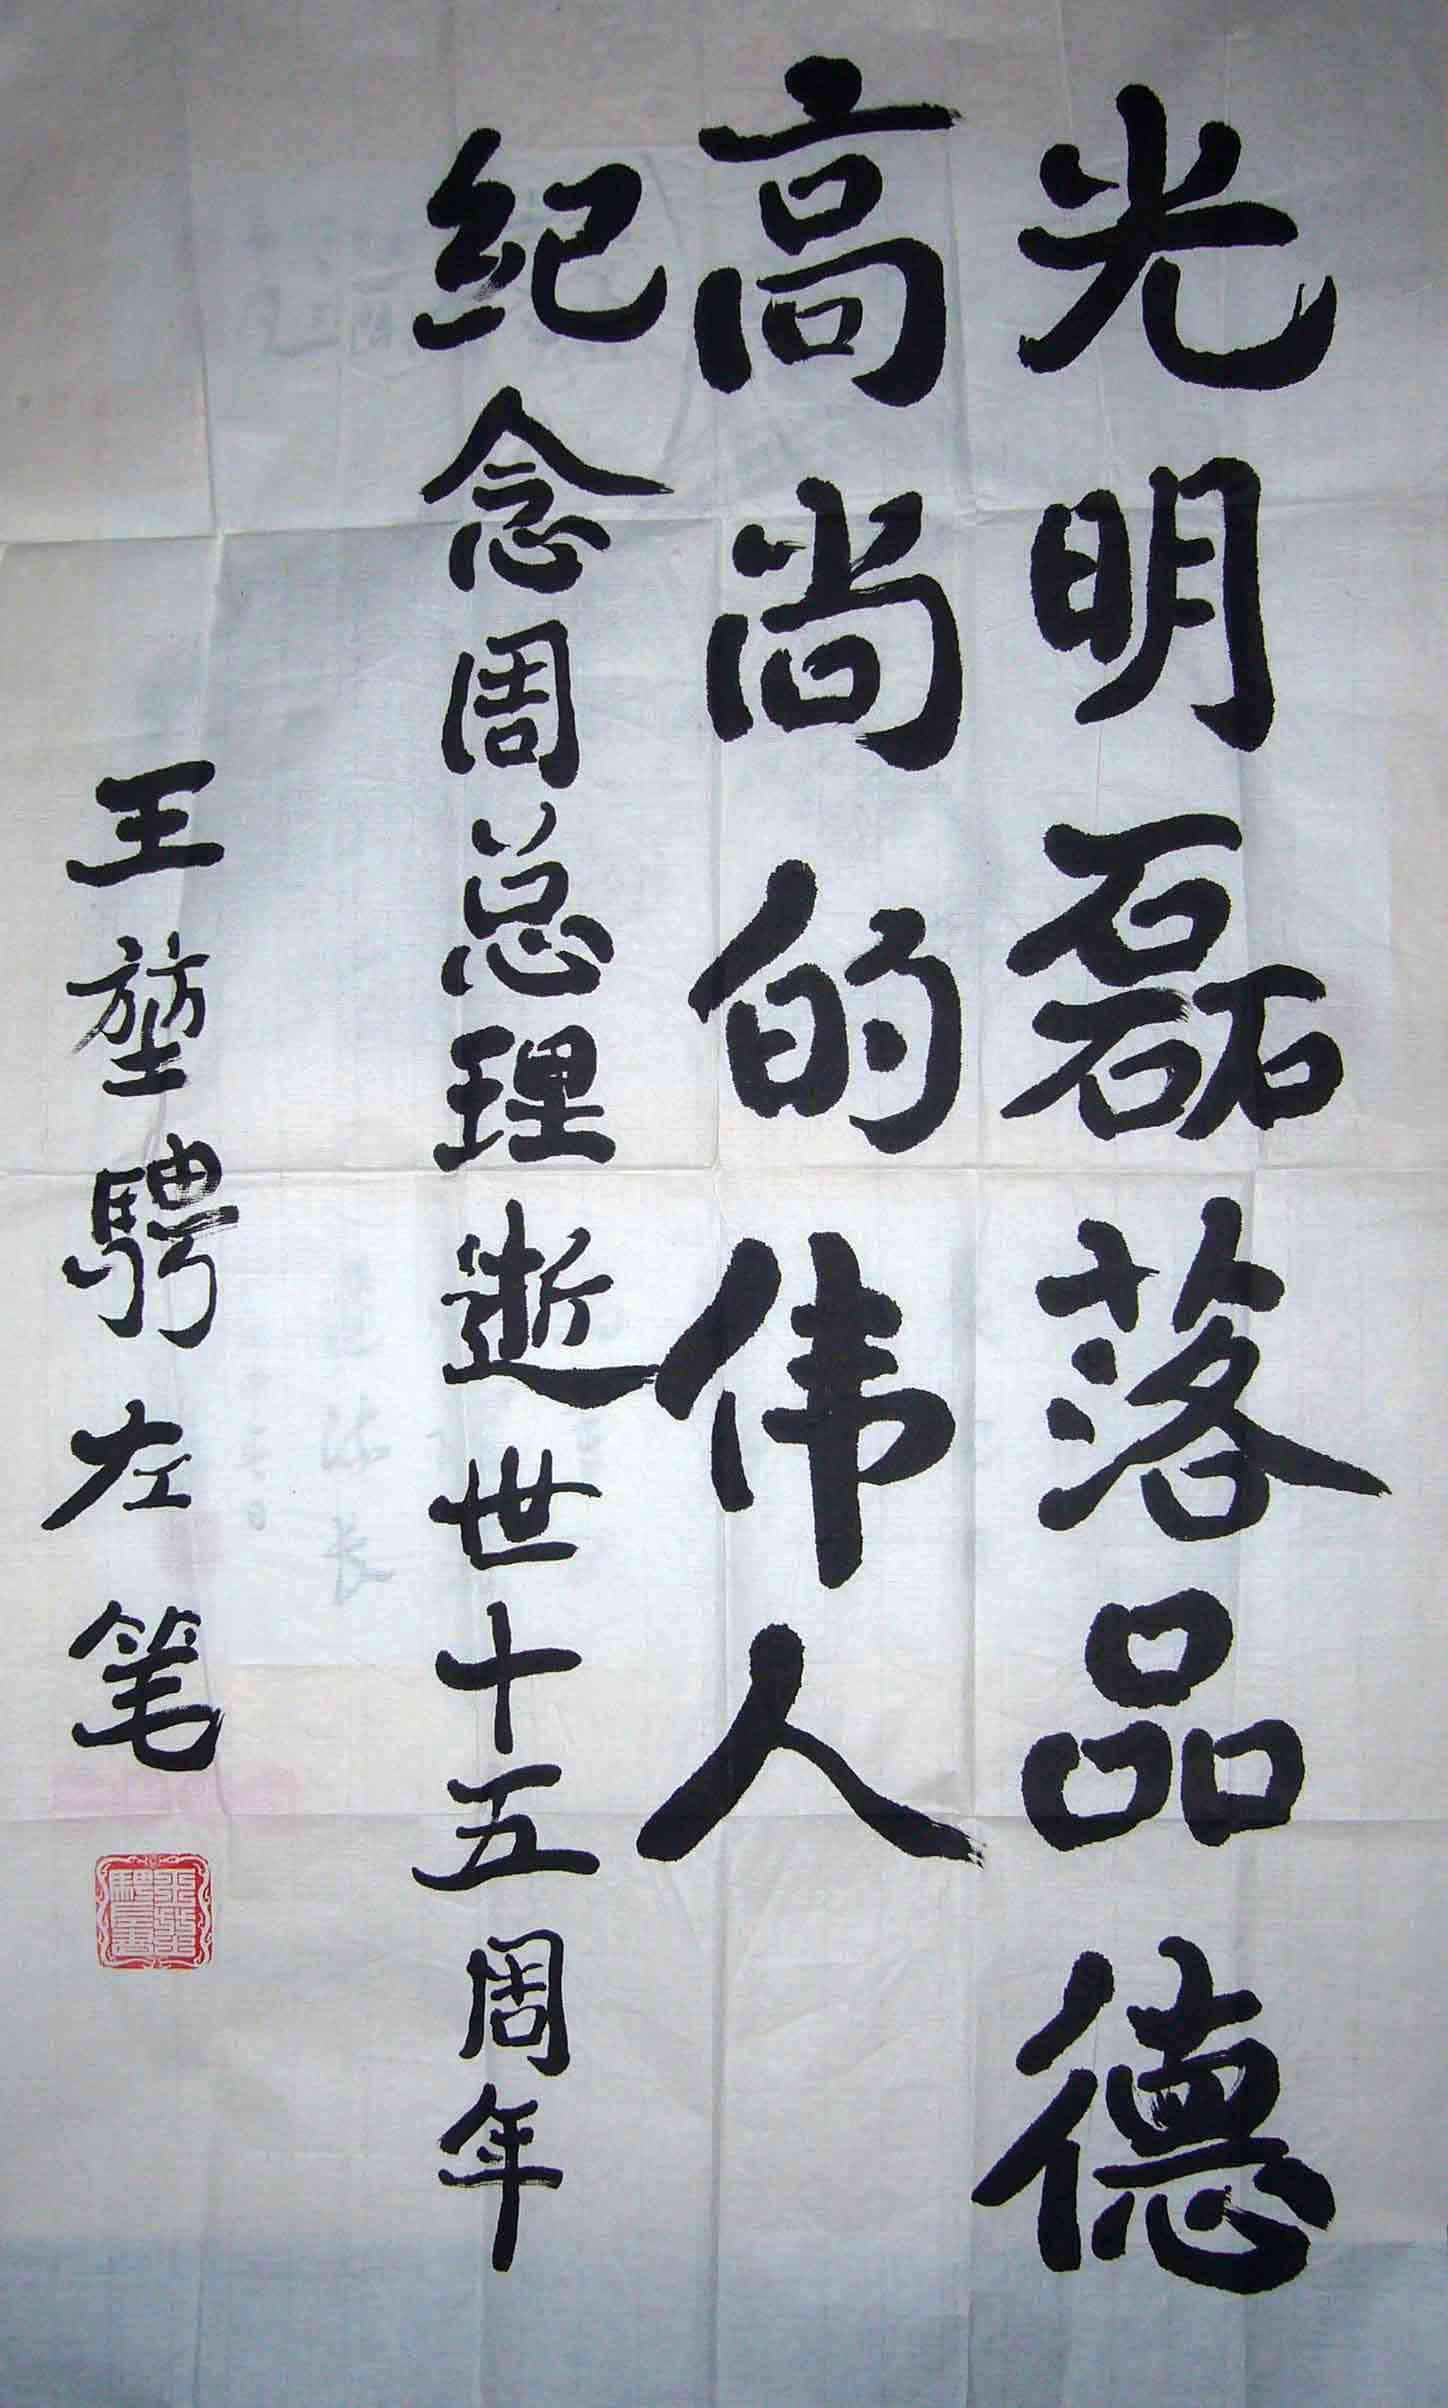 光明磊落品德
高尚的伟人
纪念周总理逝世十五周年
王堃骋左笔